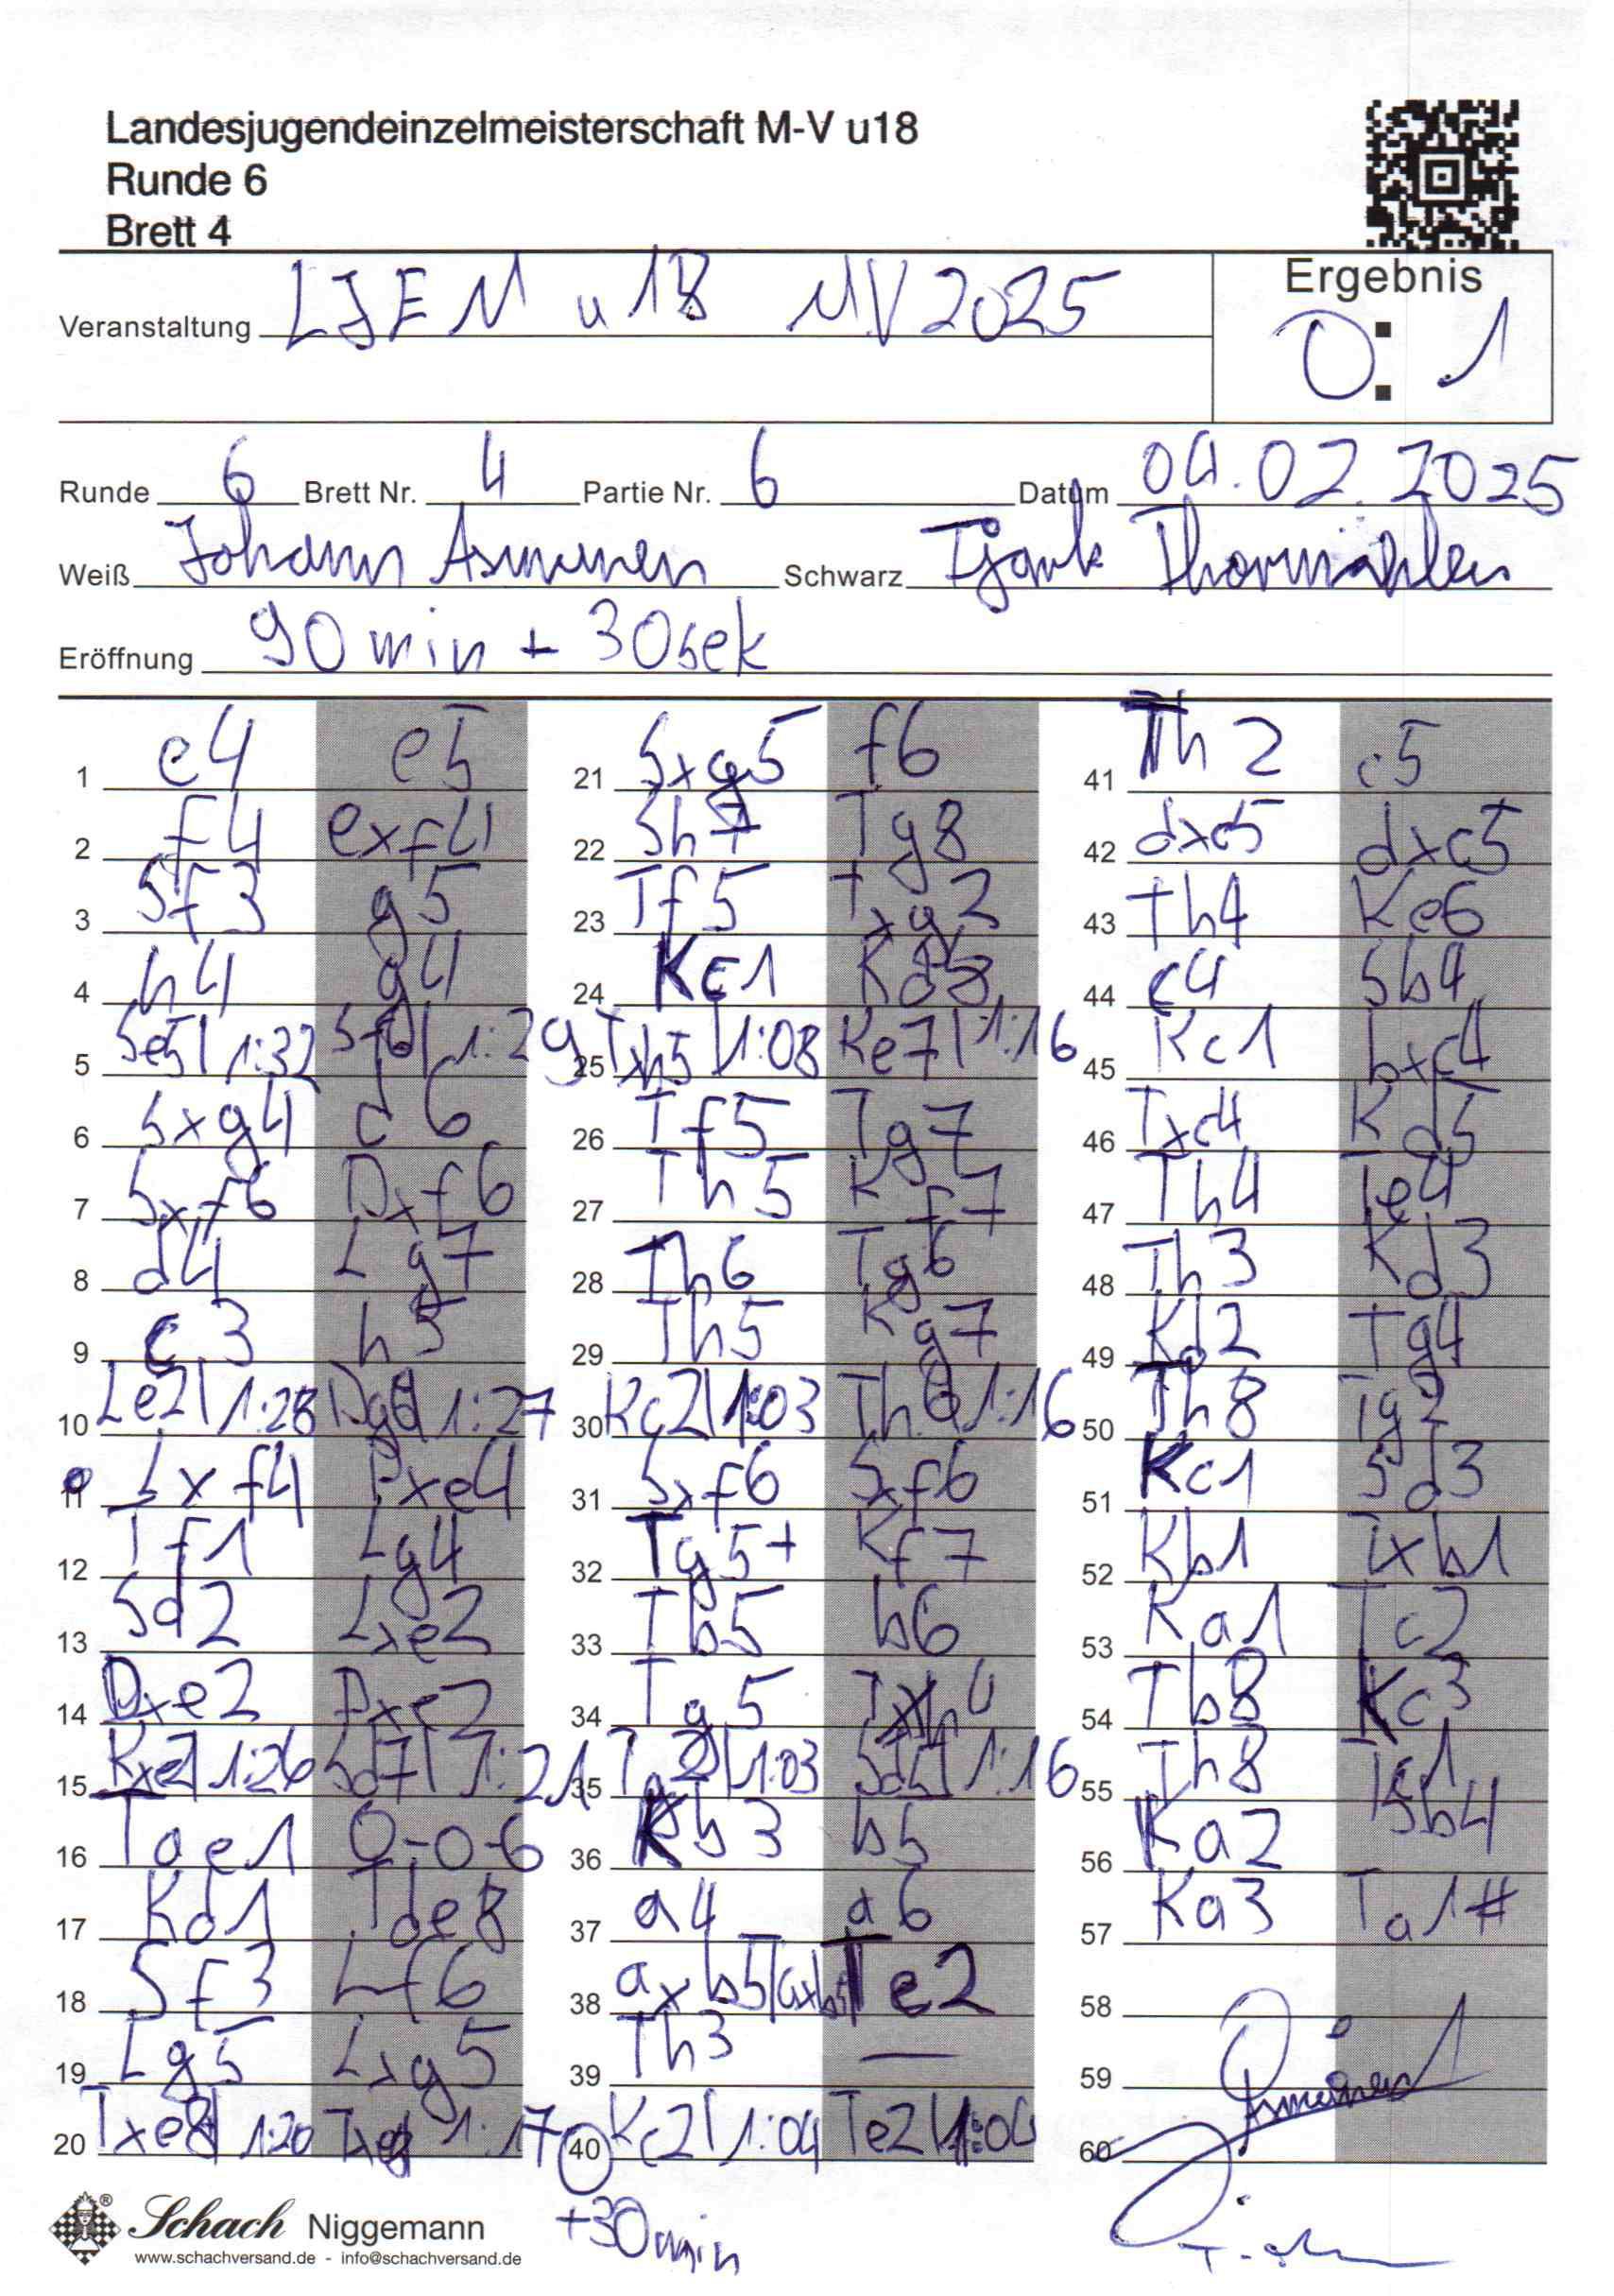 Landesjugendeinzelmeisterschaft M-V u18
Runde 6
Brett 4
Ergebnis
Veranstaltung LJEM u18 MV 2025
0 : 1
Runde 6 Brett Nr. 4 Partie Nr. 6 Datum 04.02.2025
Weiß Johann Asmussen Schwarz Tjark Thormählen
Eröffnung 90 min + 30sek
1 e4 e5
2 f4 exf4
3 Sf3 g5
4 h4 g4
5 Se5 | 1:32 Sf6 | 1:29
6 Sxg4 d6
7 Sxf6 Dxf6
8 d4 Lg7
9 c3 h5
10 Le2 | 1:28 Dg6 1:27
11 Lxf4 Dxe4
12 Tf1 Lg4
13 Sd2 Lxe2
14 Dxe2 Dxe2
15 Kxe2 | 1:26 Sd7 | 1:21
16 Tae1 0-0-0
17 Kd1 Tde8
18 Sf3 Lf6
19 Lg5 Lxg5
20 Txe8 | 1:20 Txe8 1:17
21 Sxg5 f6
22 Sh7 Tg8
23 Tf5 Txg2
24 Kc1 Kd8
25 Txh5 | 1:08 Ke7 | 1:16
26 Tf5 Tg7
27 Th5 Kf7
28 Th6 Tg6
29 Th5 Kg7
30 Kc2 | 1:03 Th6 1:16
31 Sxf6 Sxf6
32 Tg5+ Kf7
33 Tb5 b6
34 Tg5 Txh4
35 Tg2 | 1:03 Sd5 | 1:16
36 Kb3 b5
37 a4 a6
38 axb5 | axb5 | Te2
39 Th3 —
40 Kc2 | 1:04 Te2 | 1:04
+30min
41 Th2 c5
42 dxc5 dxc5
43 Th4 Ke6
44 c4 Sb4
45 Kc1 bxc4
46 Txc4 Kd5
47 Th4 Te4
48 Th3 Kd3
49 Kd2 Tg4
50 Th8 Tg2
51 Kc1 Sd3
52 Kb1 Txb1
53 Ka1 Tc2
54 Tb8 Kc3
55 Th8
56 Ka2 Sb4
57 Ka3 Ta1#
58
59
60
Schach Niggemann
www.schachversand.de - info@schachversand.de